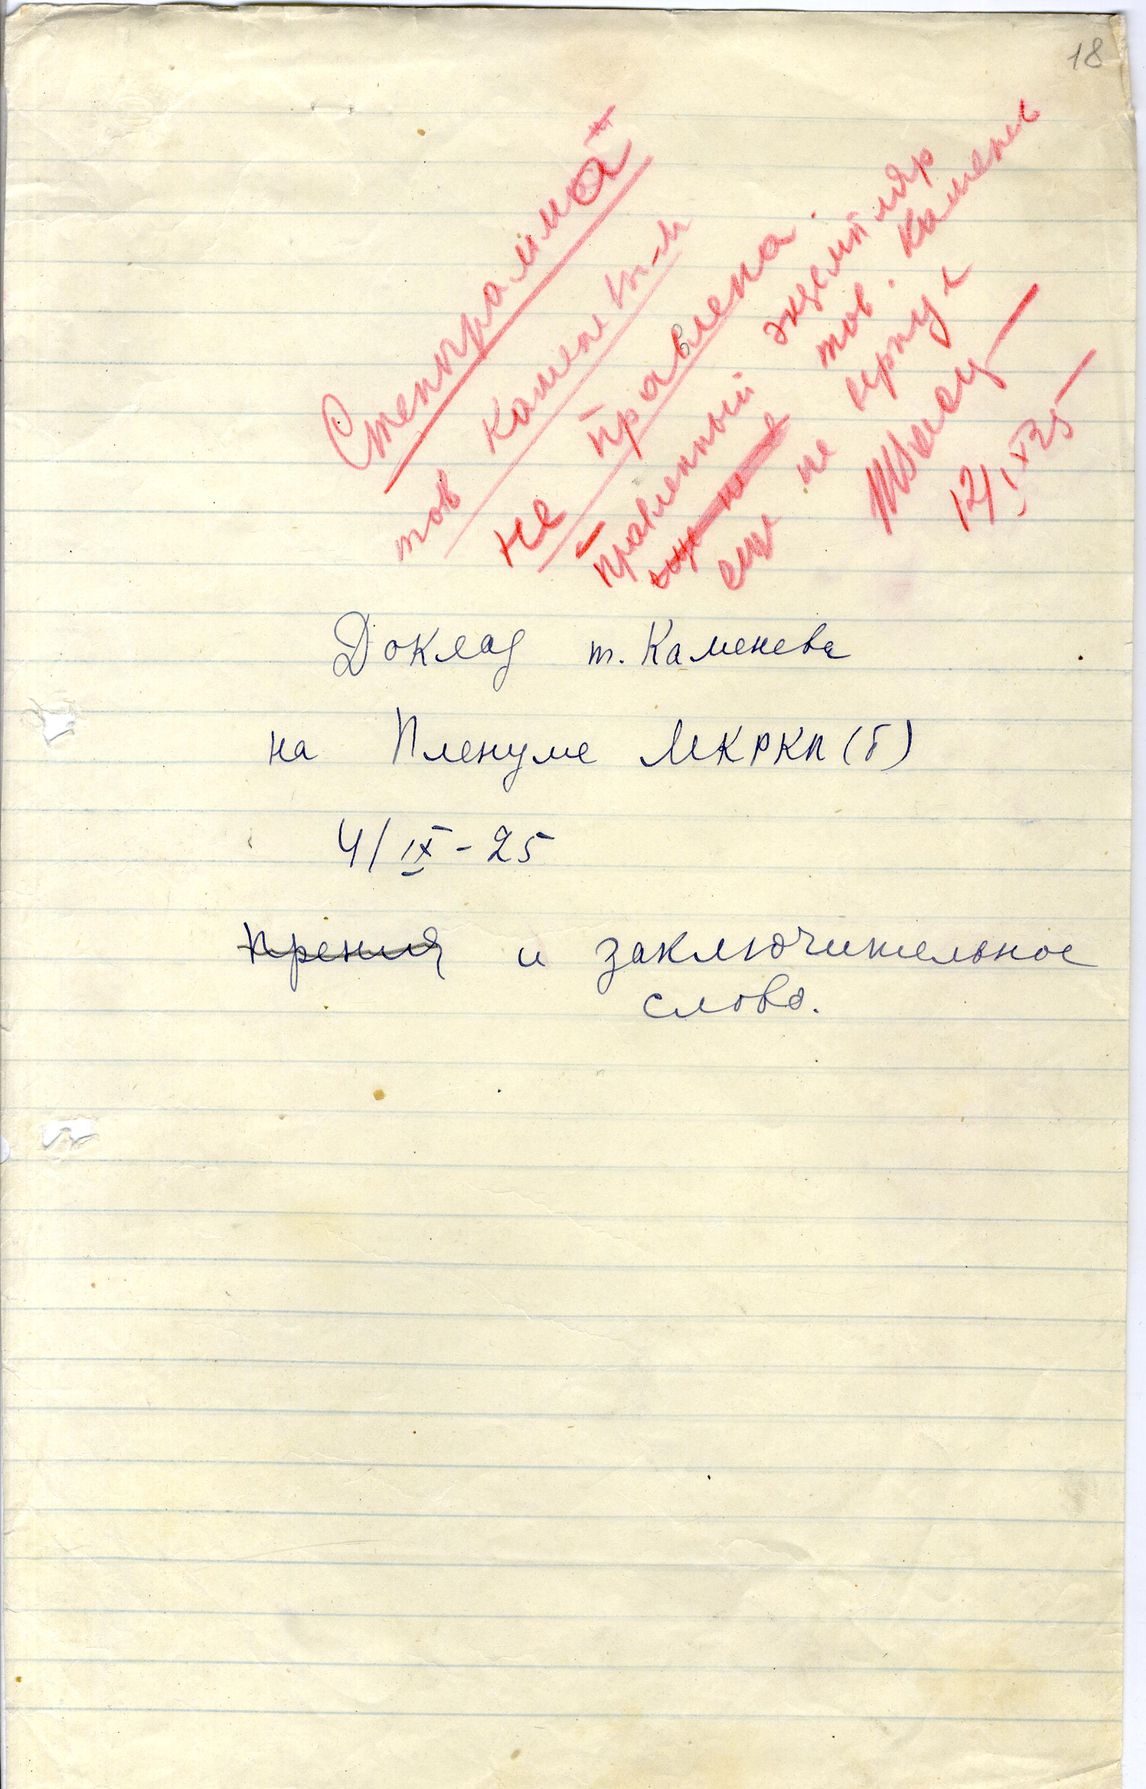 18
Стенграмма
тов Каменевым
не правлена.
Правленный экземпляр
еще не тов. Каменев
еще не вернул
12/IX25
Доклад т. Каменева
на Пленуме МКРКП(б)
4/IX-25
Прения и заключительное
слово.